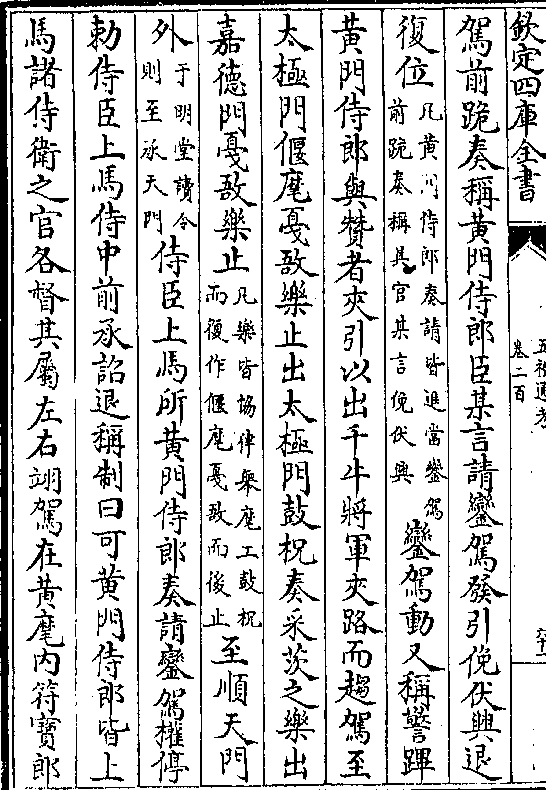 欽定四庫全書
五禮通考
卷二百
六十一
駕前跪奏稱黃門侍郎臣某言請鑾駕發引俛伏興退
復位凡黃門侍郎奏請皆進當鑾駕前跪奏稱具官某言俛伏興鑾駕動又稱警蹕
黃門侍郎與贊者夾引以出千牛將軍夾路而趨駕至
太極門偃麾戛敔樂止出太極門鼓柷奏采茨之樂出
嘉德門戛敔樂止凡樂皆協律舉麾工鼓柷而後作偃麾戛敔而後止至順天門
外于明堂讀令則至承天門侍臣上馬所黃門侍郎奏請鑾駕權停
勅侍臣上馬侍中前承詔退稱制曰可黃門侍郎皆上
馬諸侍衛之官各督其屬左右翊駕在黃麾內符寶郎